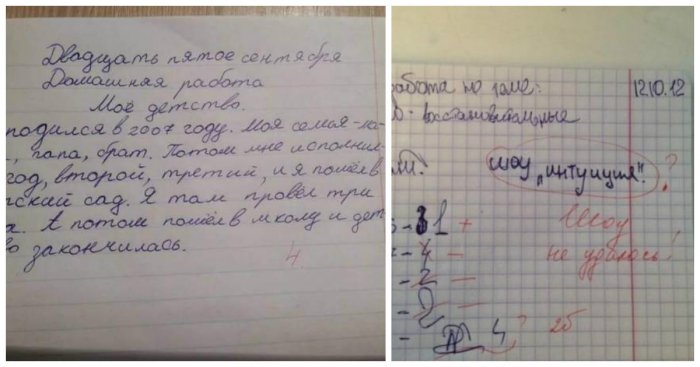 Двадцать пятое сентября
Домашняя работа
Моё детство.
родился в 2007 году. Моя семья-ма-
, папа, брат. Потом мне исполнил
год, второй, третий, и я пошёл в
тский сад. Я там провёл три
а. А потом пошёл в школу и дет
во закончилась.
4
работа по теме:
12.10.12
восстановительные
шоу „интуиция".
?
1 +
Шоу
- 4 -
не удалось!
- 2 -
- 2 -
- 4 ?
2б